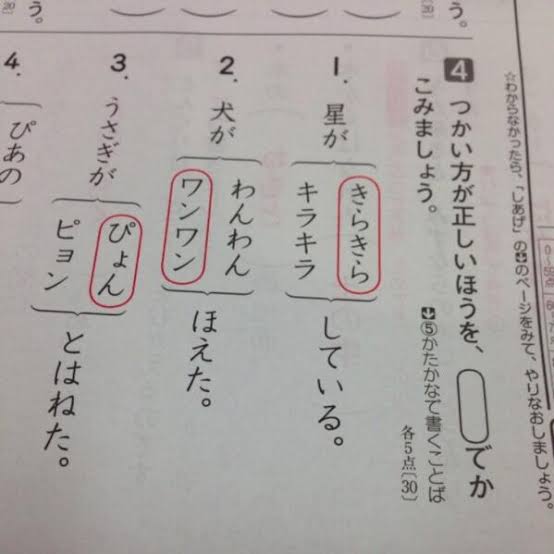 ☆わからなかったら、「しあげ」の⬇のページをみて、やりなおしましょう。
4 つかい方が正しいほうを、でか
こみましょう。
⬇⑤かたかなで書くことば
各5点〔30〕
1. 星が
きらきら
キラキラ
している。
2. 犬が
わんわん
ワンワン
ほえた。
3. うさぎが
ぴょん
ピョン
とはねた。
4.
ぴあの
う。
〔20〕
う。